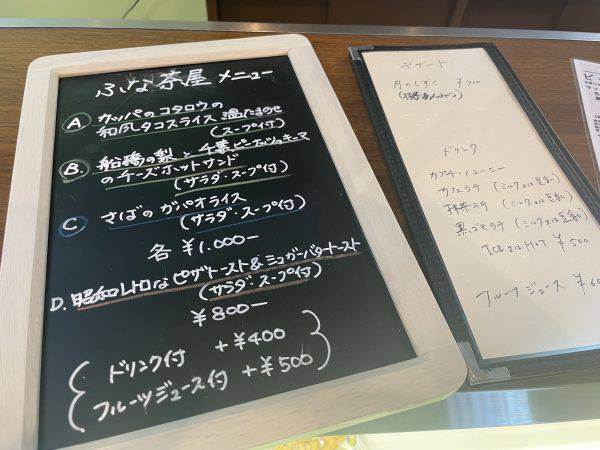 ふなな茶屋 メニュー
A カッパのコタロウの
和風タコスライス 温たまのせ
(スープ付)
B. 船橋の梨と千葉ピーナッツのキーマ
のチーズホットサンド
(サラダ・スープ付)
C さばのガパオライス
(サラダ・スープ付)
各 ¥1.000-
D. 昭和レトロなピザトースト&シュガーバタートースト
(サラダ・スープ付)
¥800-
ドリンク付 +¥400
フルーツジュース付 +¥500
デザート
月のしずく ¥700
ドリンク
カプチーノコーヒー
カフェラテ (ミルク又は豆乳)
抹茶ラテ (ミルク又は豆乳)
黒ゴマラテ (ミルク又は豆乳)
ICE又はHOT ¥500
フルーツジュース ¥60